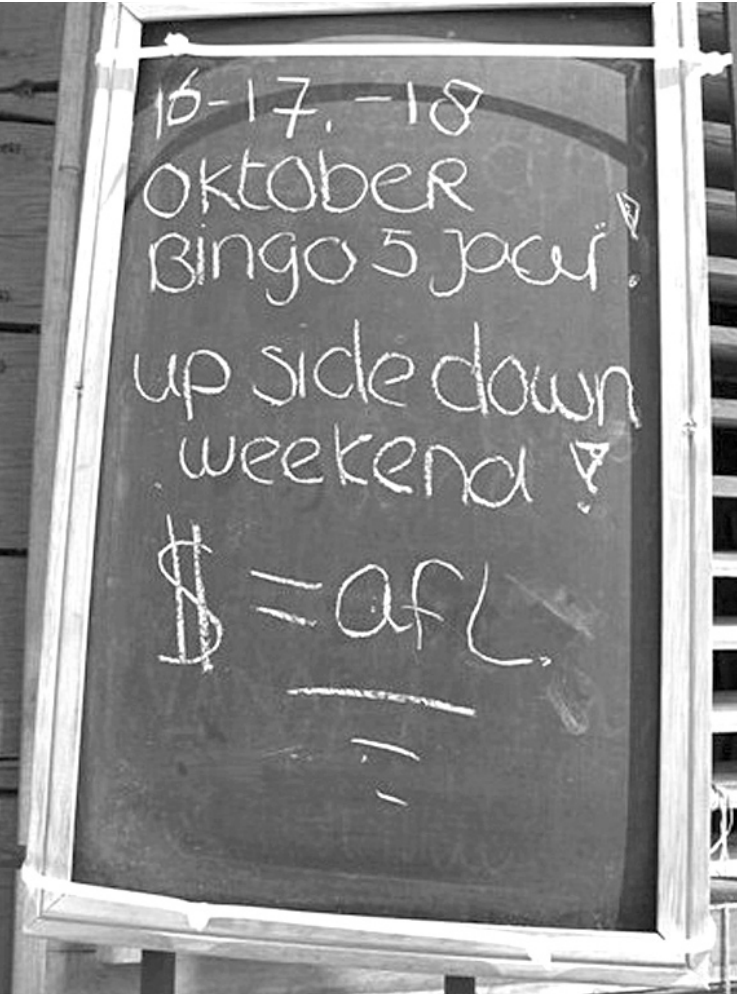 16-17.-18
OKtOBER
Bingo 5 jaar!
up side down
weekend!
$ = afl.